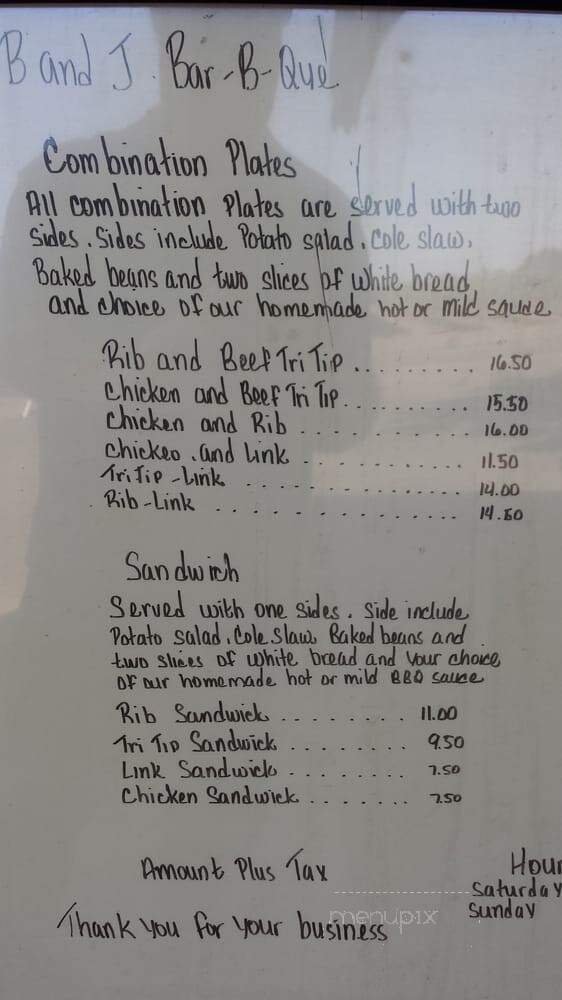 B and J Bar-B-Que
Combination Plates
All combination Plates are served with two
sides. Sides include Potato salad. Cole slaw.
Baked beans and two slices of white bread,
and choice of our homemade hot or mild sauce
Rib and Beef Tri Tip ......... 16.50
Chicken and Beef Tri Tip .......... 15.50
Chicken and Rib ........... 16.00
Chicken .and Link .......... 11.50
Tri Tip -Link ............. 14.00
Rib-Link .............. 14.50
Sandwich
Served with one sides. Side include
Potato salad. Cole Slaw, Baked beans and
two slices of white bread and Your choice
of our homemade hot or mild BBQ sauce
Rib Sandwick ........ 11.00
Tri Tip Sandwick ........ 9.50
Link Sandwick ........ 7.50
Chicken Sandwick ....... 7.50
Amount Plus Tax
Hour
Saturday
Sunday
Thank you for your business
menupix